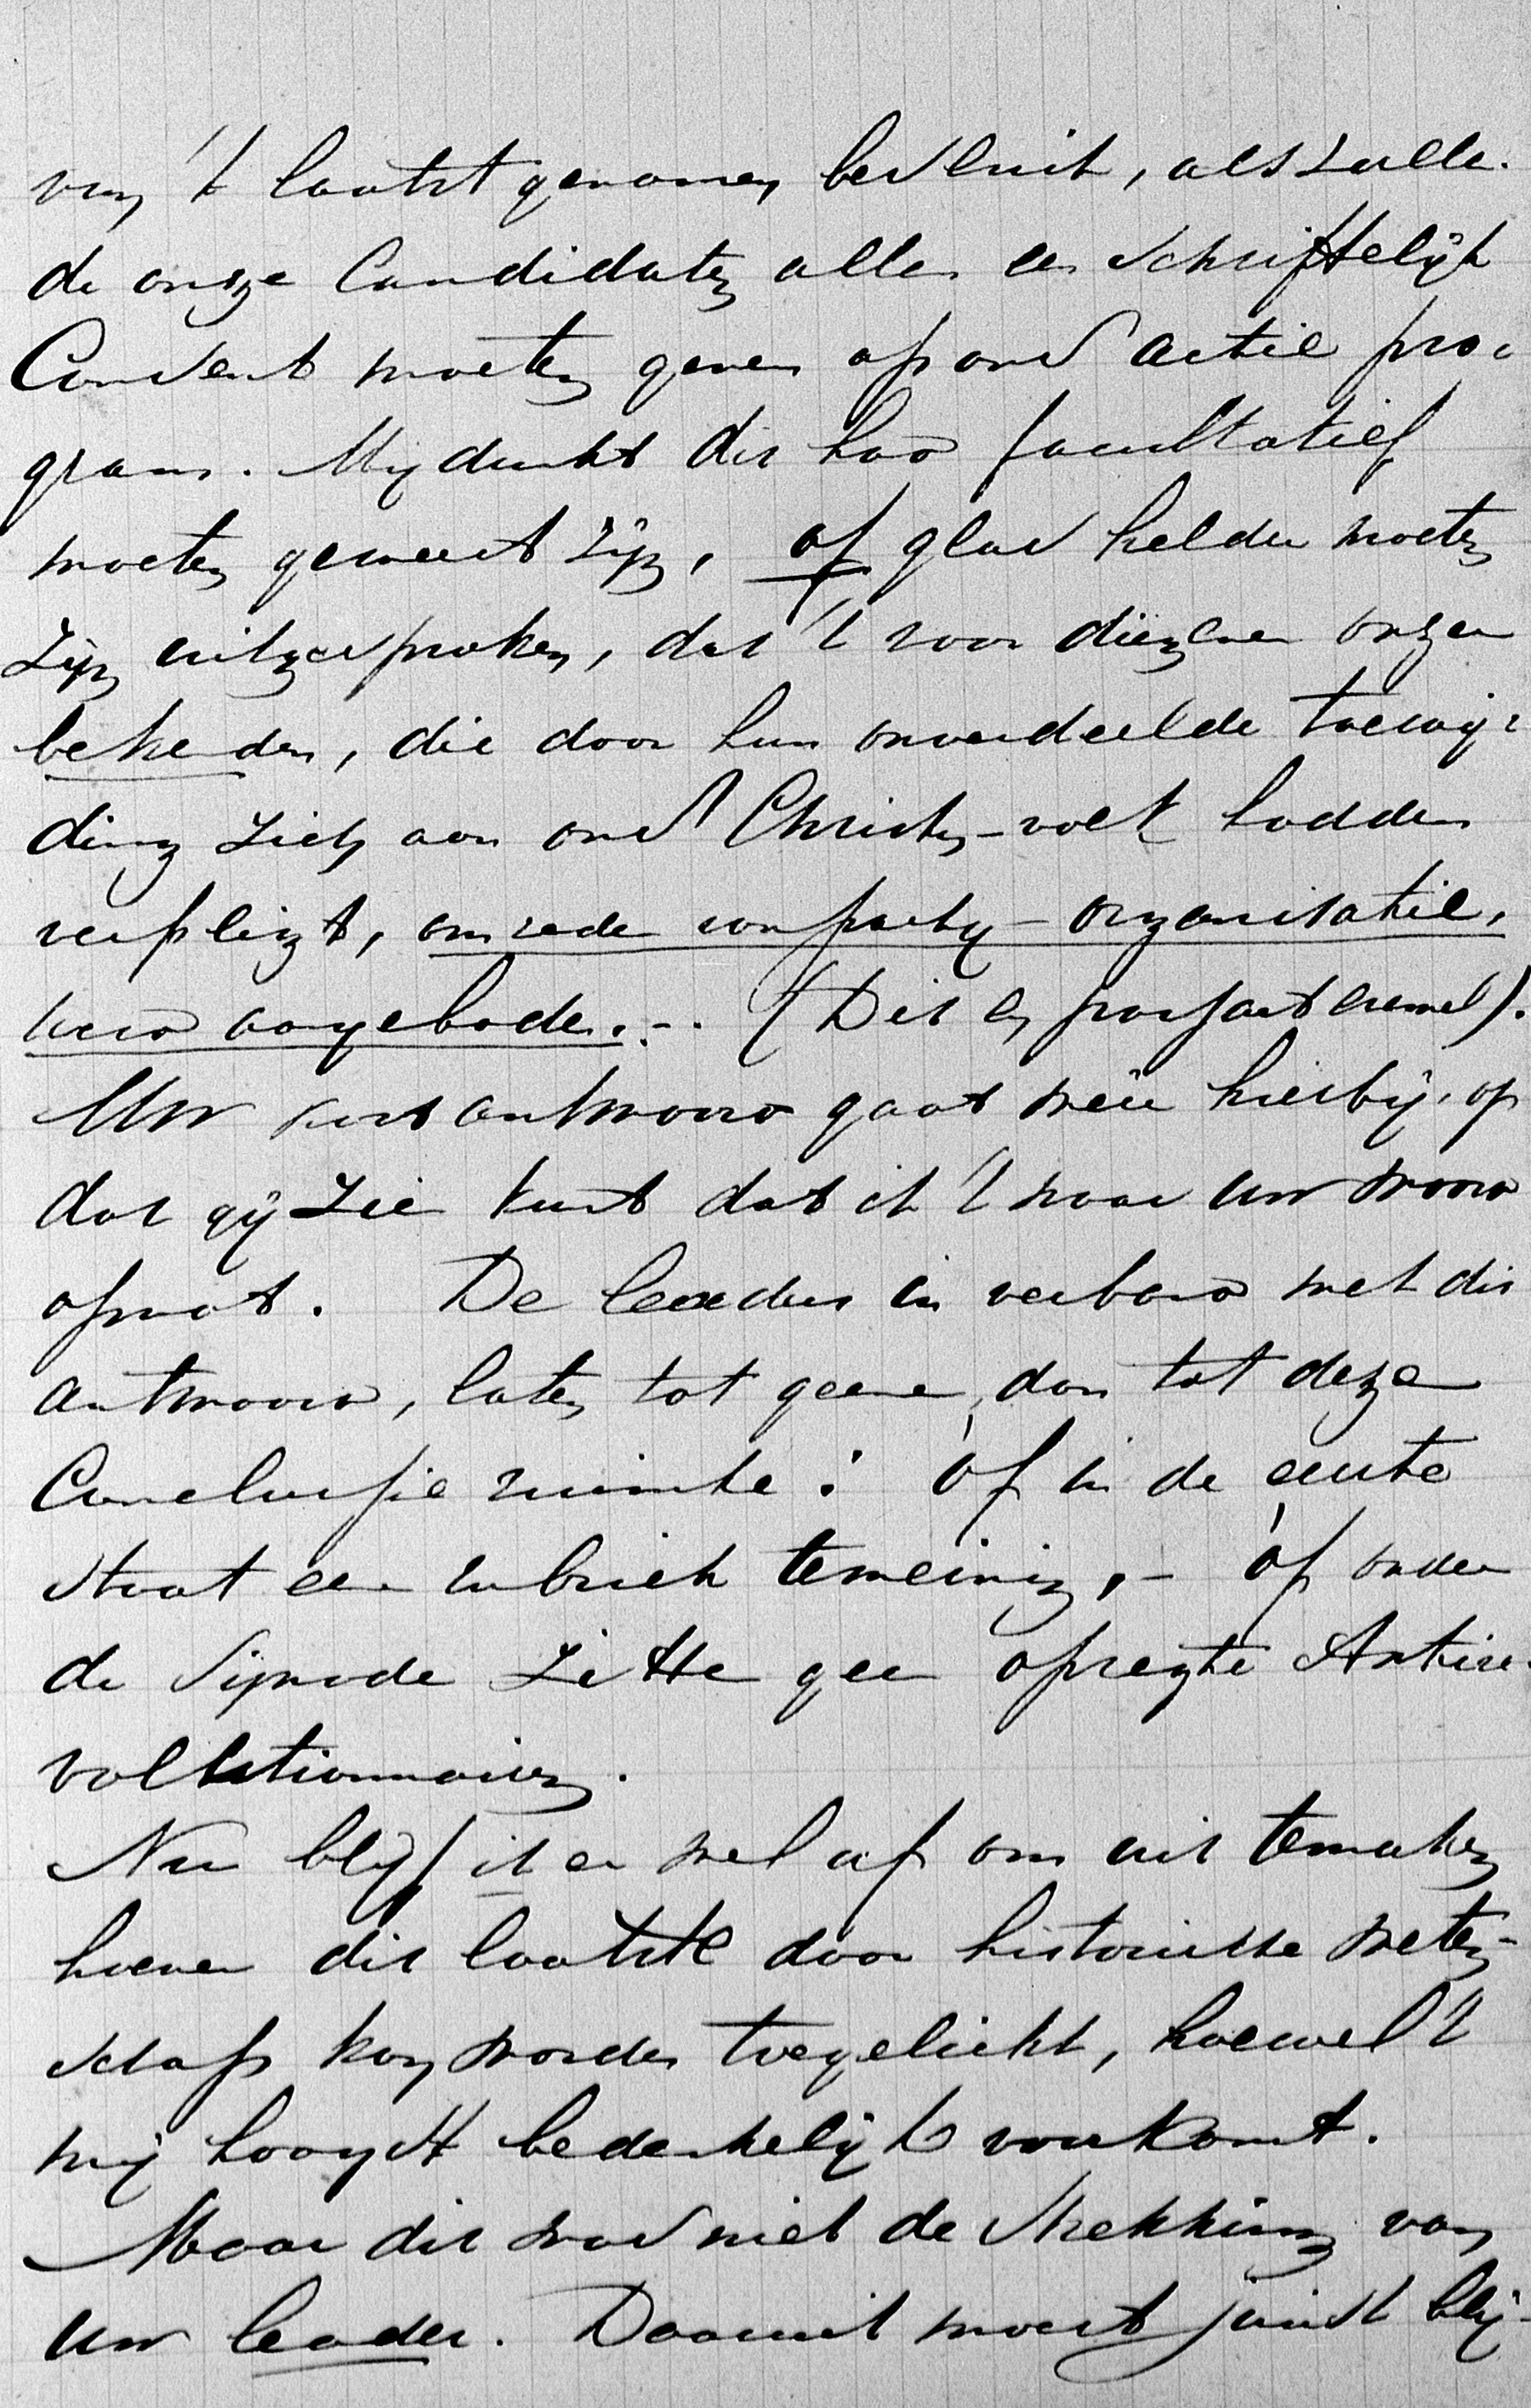 van 't laatst genomen besluit, als zulle-
de onze Candidaten alle een schriftelijk
Consent moeten geven op ons actie pro-
gram. Mij dunkt dit had facultatief
moeten geweest zijn, of glashelder moeten
zijn uitgesproken, dat 't voor diegenen onzer
bekenden, die door hun onverdeelde toewij-
ding zich aan ons Christen-volk hadden
verpligt, om rede van partij-organisatie,
werd aangeboden. -. (Dit en passant even).
Uw kort antwoord gaat meê hierbij, op
dat gij zien kunt dat ik 't naar uw woord
opvat. De leader in verband met dit
antwoord, laten tot geene, dan tot deze
Conclusie ruimte: òf in de eerste
staat een rubriek te weinig, - òf onder
de Synode zitten geen opregte Antire-
volutionnairen.
Nu blijf ik er wel af om uit te maken
hoever dit laatste door historische weten-
schap kan worden toegelicht, hoewel 't
mij hoogst bedenkelijk voorkomt.
Maar dit was niet de strekking van
uw leader. Daaruit moest juist blij-